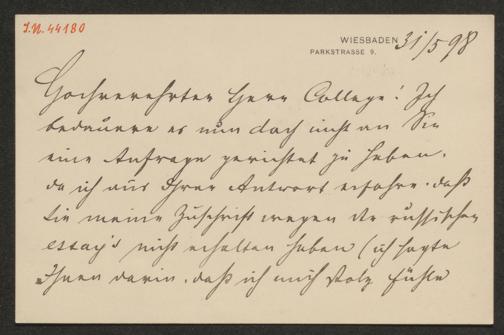 J.N. 44180
WIESBADEN 31/5 98
PARKSTRASSE 9.
Hochverehrter Herr College! Ich
bedauere es nun doch nicht an Sie
eine Anfrage gerichtet zu haben.
da ich aus Ihrer Antwort erfahre. daß
Sie meine Zuschrift wegen der russischen
essay's nicht erhalten haben (ich sagte
Ihnen darin. daß ich mich stolz fühle